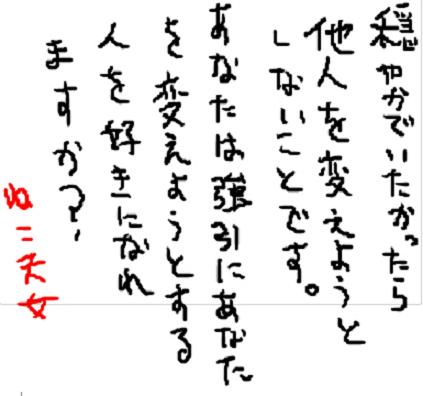 穏やかでいたかったら
他人を変えようと
しないことです。
あなたは強引にあなた
を変えようとする
人を好きになれ
ますか?
ねこ天女